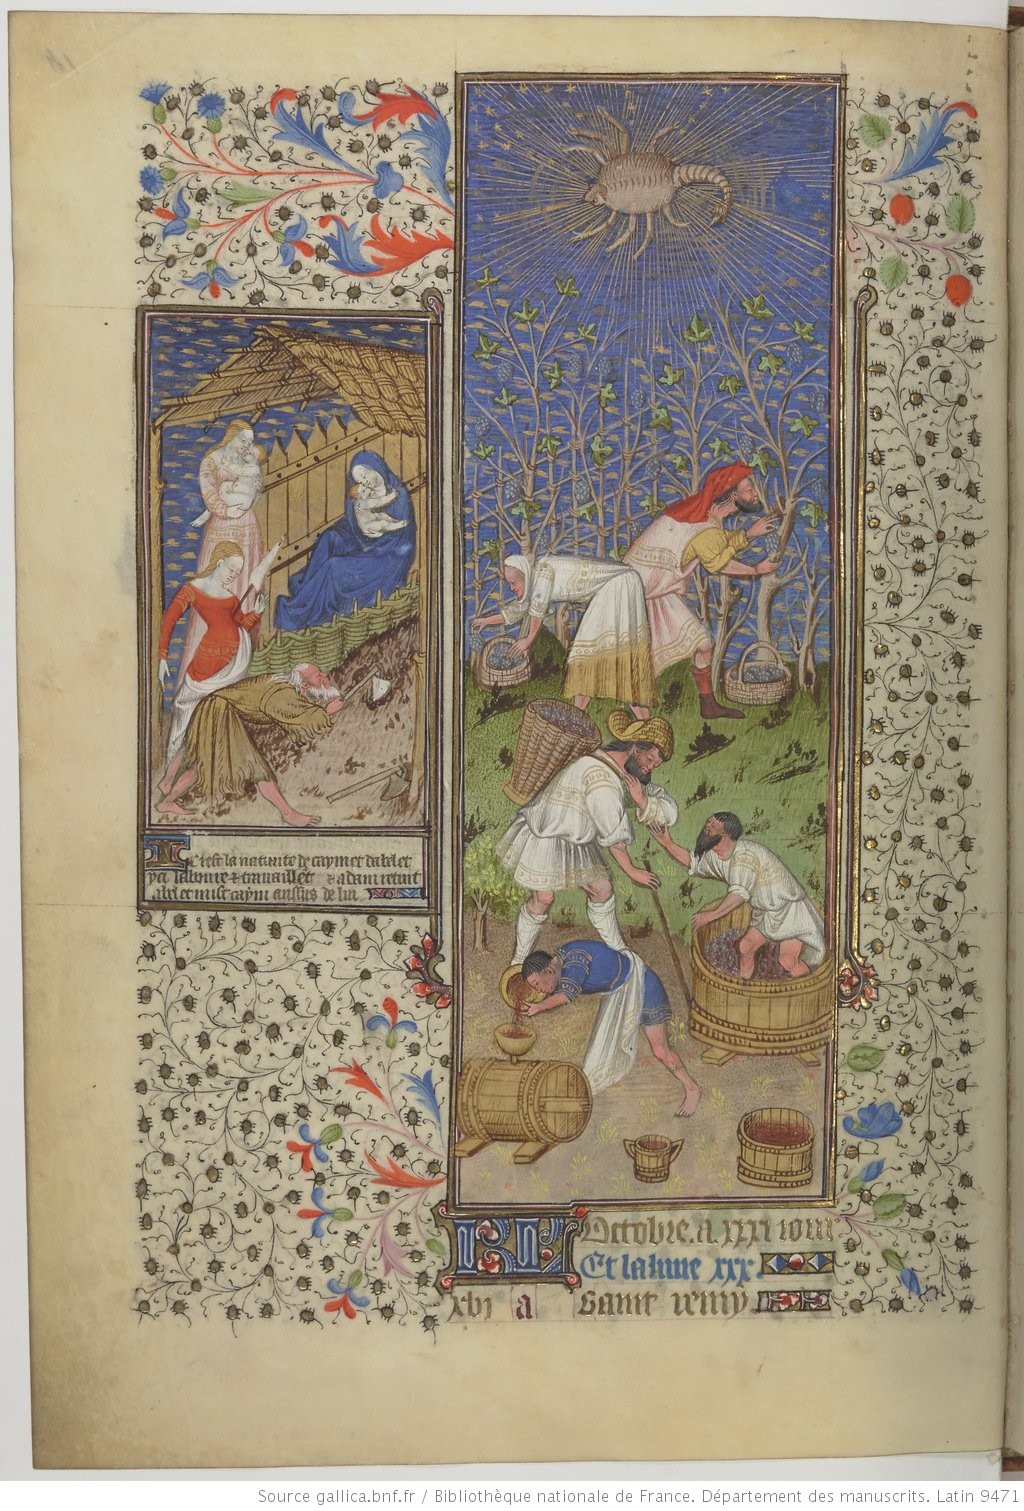 Cest la natiuite de caym et dabel et
yci laboure & trauaillet & adam tenuit
abel et mist caym
KL Octobre. a. xxxi iour
Et la lune xxx.
xvi a Saint remy
Source gallica.bnf.fr / Bibliothèque nationale de France. Département des manuscrits. Latin 9471